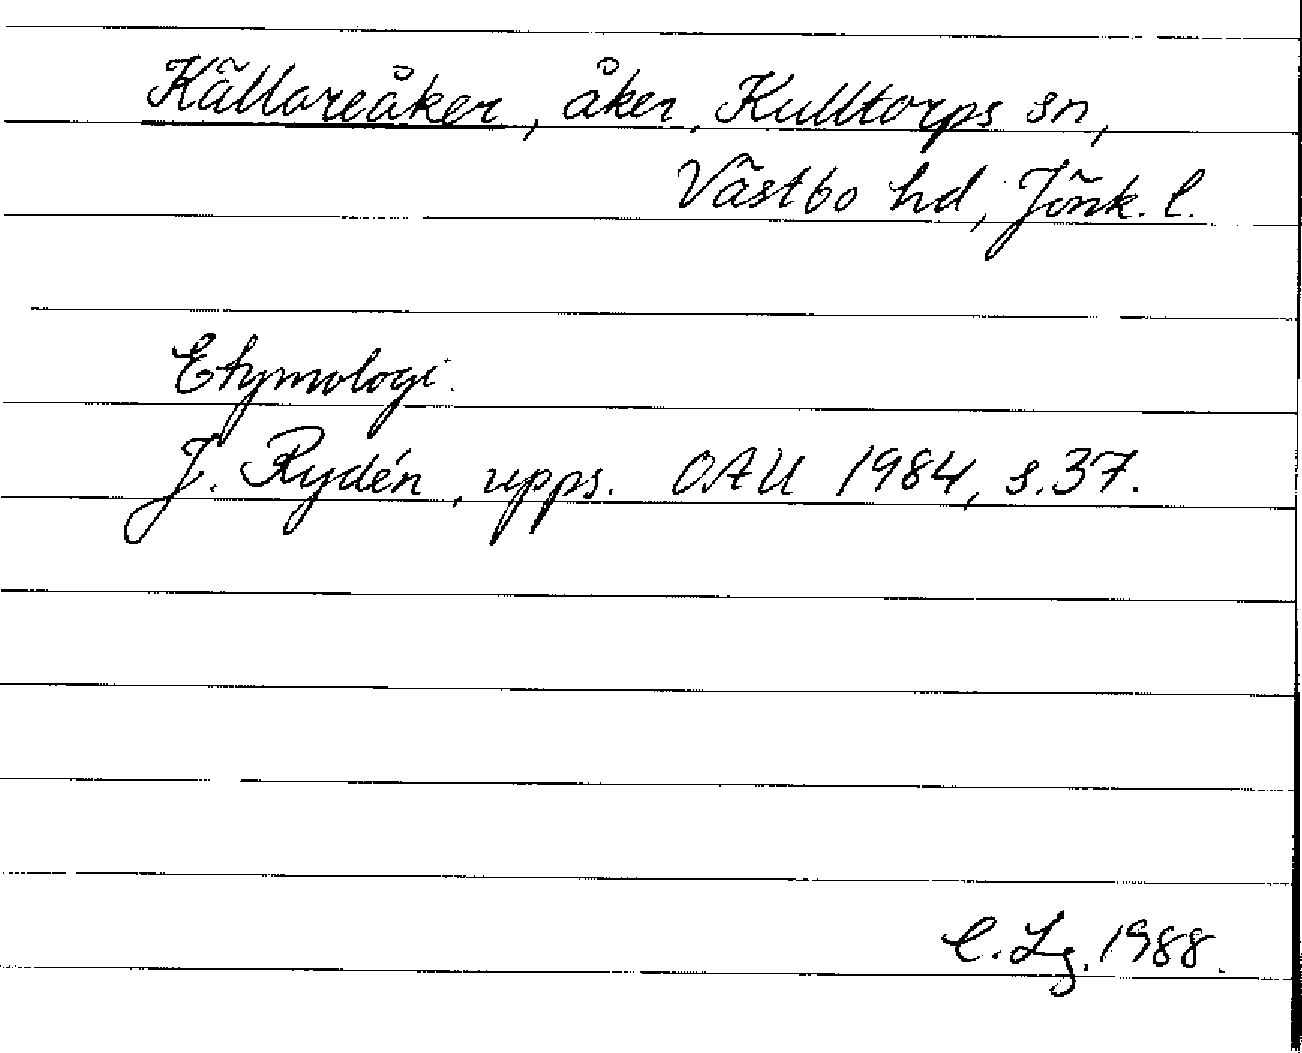 Källareåker, åker, Kulltorps sn,
Västbo hd, Jönk. l.
Etymologi.
J. Rydén, upps. OAU 1984, s.37.
C. Lg. 1988.